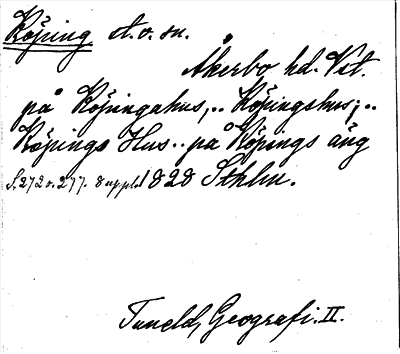 Köping st. o. sn.
Åkerbo hd. Vstl.
på Köpingahus,.. Köpingshus;..
Köpings Hus.. på Köpings äng
S. 272 o. 277. 8 uppl. 1828 Sthlm.
Tuneld, Geografi. II.